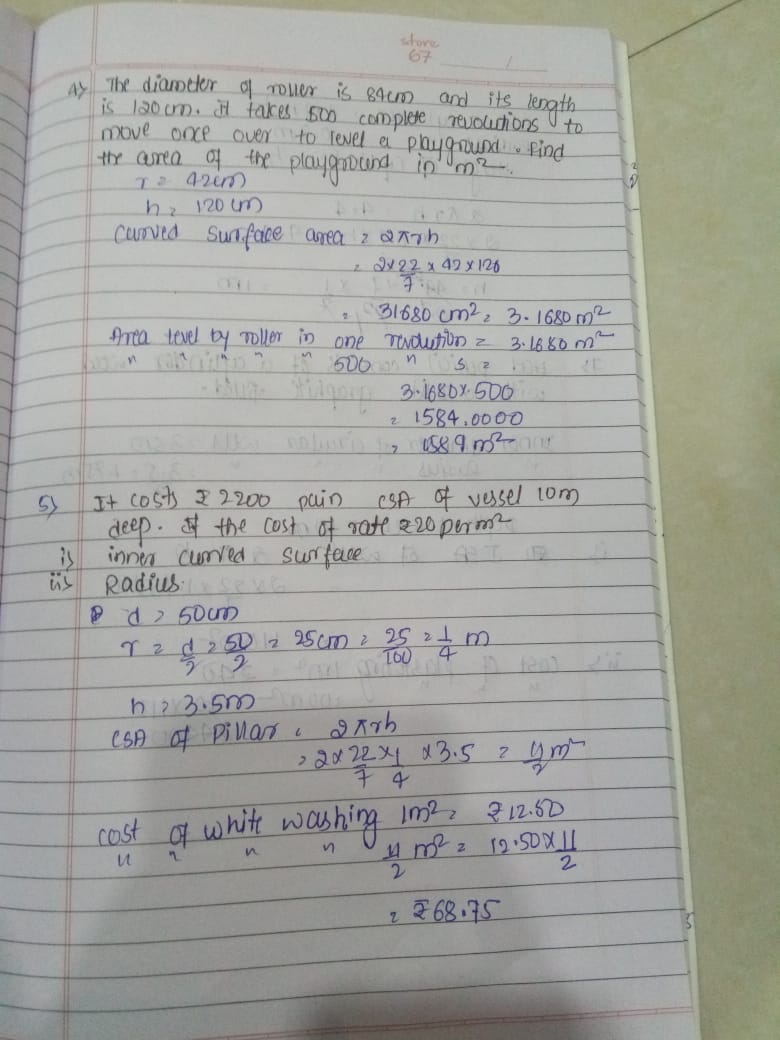 store
67
4) The diameter of roller is 84cm and its length
is 120cm. It takes 500 complete revolutions to
move once over to level a playground. Find
the area of the playground in m².
r = 42cm
h = 120cm
Curved Surface area = 2πrh
= 2×22/7 × 42×120
= 31680 cm² = 3.1680m²
Area level by roller in one revolution = 3.1680 m²
" " " " " 500 " s =
3.1680×500
= 1584.0000
= 1584 m²
5) It costs ₹2200 pain CSA of vessel 10m
deep. If the cost of rate ₹20 per m²
i) inner curved surface
ii) Radius.
d = 50cm
r = d/2 = 50/2 = 25cm = 25/100 = 1/4 m
h = 3.5m
CSA of Pillar = 2πrh
= 2×22/7×1/4 ×3.5 = 11/2 m²
cost of white washing 1m² = ₹12.50
" " " " 11/2 m² = 12.50×11/2
= ₹68.75